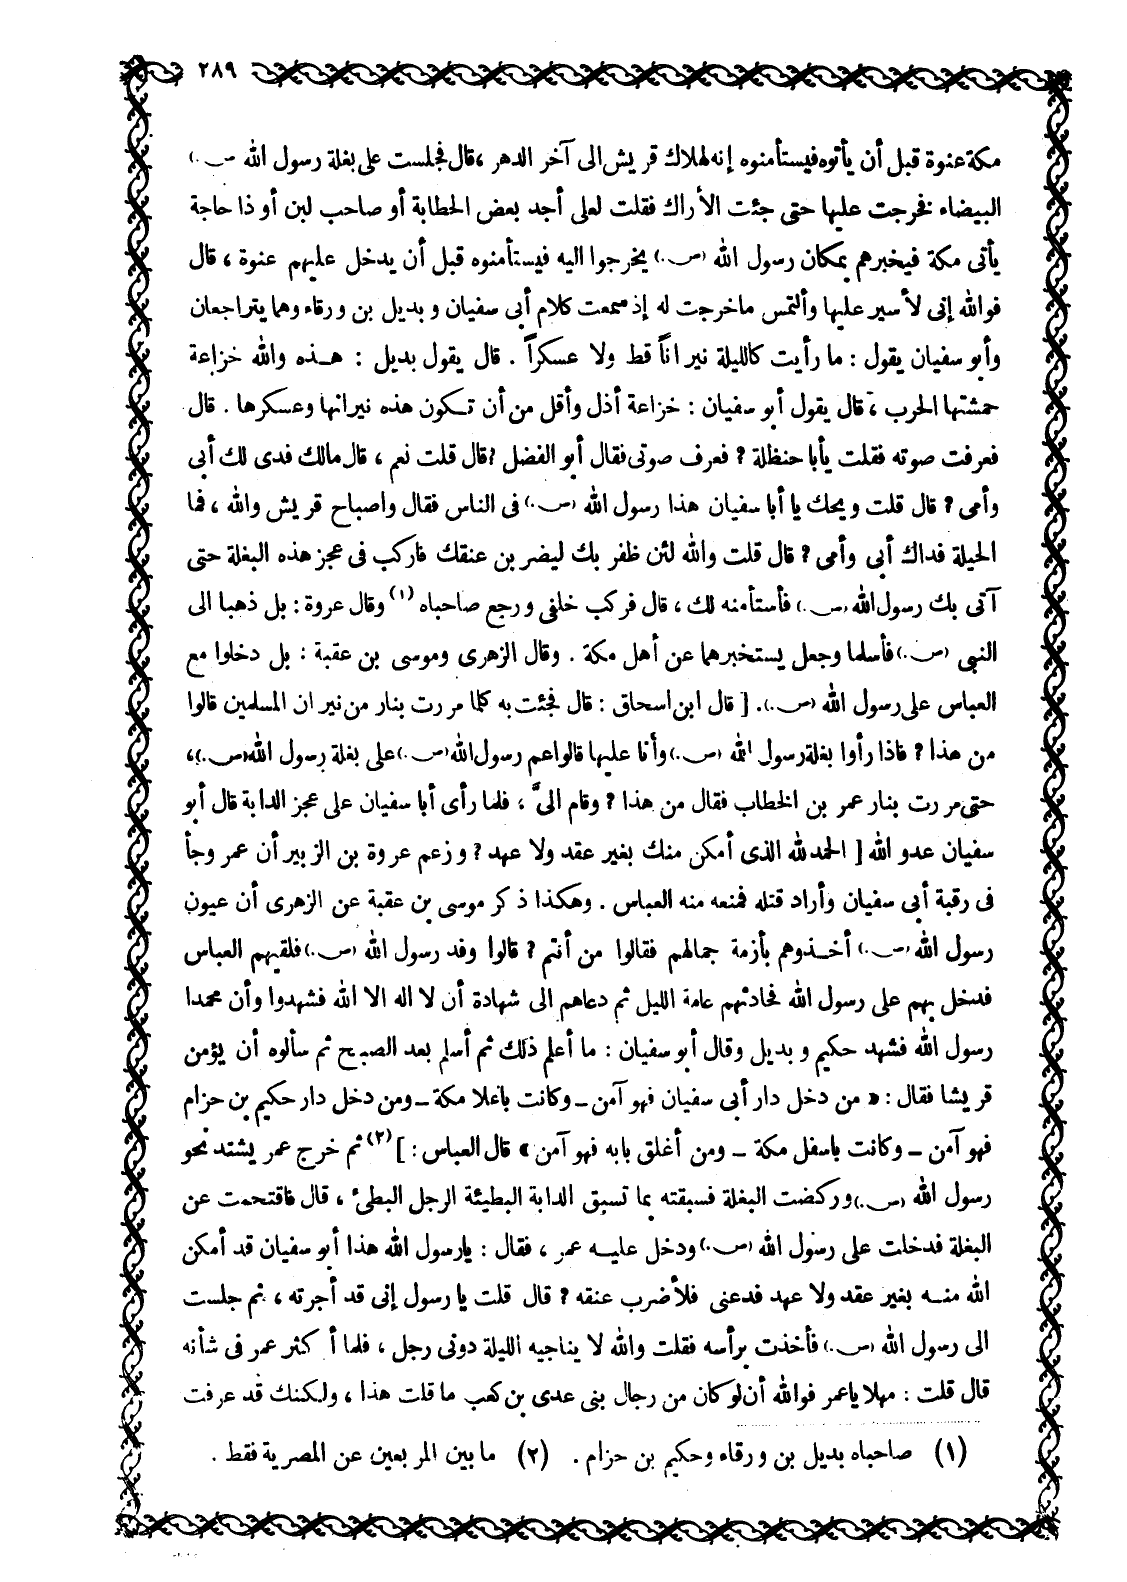 ٢٨٩
مكة عنوة قبل أن يأتوه فيستأمنوه إنه لهلاك قريش الى آخر الدهر ، قال فجلست على بغلة رسول الله (ص.)
البيضاء فخرجت عليها حتى جئت الأراك فقلت لعلى أجد بعض الحطابة أو صاحب لبن أو ذا حاجة
يأتى مكة فيخبرهم بمكان رسول الله (ص.) يخرجوا اليه فيستأمنوه قبل أن يدخل عليهم عنوة ، قال
فوالله إنى لأسير عليها وألتمس ماخرجت له إذ سمعت كلام أبى سفيان وبديل بن ورقاء وهما يتراجعان
وأبو سفيان يقول : ما رأيت كالليلة نيراناً قط ولا عسكراً . قال يقول بديل : هـذه والله خزاعة
حمشتها الحرب ، قال يقول أبو سفيان : خزاعة أذل وأقل من أن تـكون هذه نيرانها وعسكرها . قال
فعرفت صوته فقلت يأبا حنظلة ? فعرف صوتى فقال أبو الفضل ? قال قلت نعم ، قال مالك فدى لك أبى
وأمى ? قال قلت ويحك يا أبا سفيان هذا رسول الله (ص.) فى الناس فقال واصباح قريش والله ، فما
الحيلة فداك أبى وأمى ? قال قلت والله لئن ظفر بك ليضربن عنقك فاركب فى عجز هذه البغلة حتى
آتى بك رسول الله (ص.) فأستأمنه لك ، قال فركب خلفى ورجع صاحباه (١) وقال عروة : بل ذهبا الى
النبى (ص.) فأسلما وجعل يستخبرهما عن أهل مكة . وقال الزهرى وموسى بن عقبة : بل دخلوا مع
العباس على رسول الله (ص.). [ قال ابن اسحاق : قال فجئت به كلما مررت بنار من نيران المسلمين قالوا
من هذا ? فاذا رأوا بغلة رسول الله (ص.) وأنا عليها قالوا عم رسول الله (ص.) على بغلة رسول الله (ص.)،
حتى مررت بنار عمر بن الخطاب فقال من هذا ? وقام الىَّ ، فلما رأى أبا سفيان على عجز الدابة قال أبو
سفيان عدو الله [ الحمد لله الذى أمكن منك بغير عقد ولا عهد ? وزعم عروة بن الزبير أن عمر وجأ
فى رقبة أبى سفيان وأراد قتله فمنعه منه العباس . وهكذا ذكر موسى بن عقبة عن الزهرى أن عيون
رسول الله (ص.) أخـذوهم بأزمة جمالهم فقالوا من أنتم ? قالوا وفد رسول الله (ص.) فلقيهم العباس
فدخل بهم على رسول الله فحادثهم عامة الليل ثم دعاهم الى شهادة أن لا اله الا الله فشهدوا وأن محمدا
رسول الله فشهد حكيم وبديل وقال أبو سفيان : ما أعلم ذلك ثم أسلم بعد الصبح ثم سألوه أن يؤمن
قريشا فقال : « من دخل دار أبى سفيان فهو آمن ـ وكانت باعلا مكة ـ ومن دخل دار حكيم بن حزام
فهو آمن ـ وكانت باسفل مكة ـ ومن أغلق بابه فهو آمن » قال العباس : ] (٢) ثم خرج عمر يشتد نحو
رسول الله (ص.) وركضت البغلة فسبقته بما تسبق الدابة البطيئة الرجل البطئ ، قال فاقتحمت عن
البغلة فدخلت على رسول الله (ص.) ودخل عليـه عمر ، فقال : يارسول الله هذا أبو سفيان قد أمكن
الله منـه بغير عقد ولا عهد فدعنى فلأضرب عنقه ? قال قلت يا رسول إنى قد أجرته ، ثم جلست
الى رسول الله (ص.) فأخذت برأسه فقلت والله لا يناجيه الليلة دونى رجل ، فلما أكثر عمر فى شأنه
قال قلت : مهلا ياعمر فوالله أن لو كان من رجال بنى عدى بن كعب ما قلت هذا ، ولـكنك قد عرفت
(١) صاحباه بديل بن ورقاء وحكيم بن حزام . (٢) ما بين المربعين عن المصرية فقط .